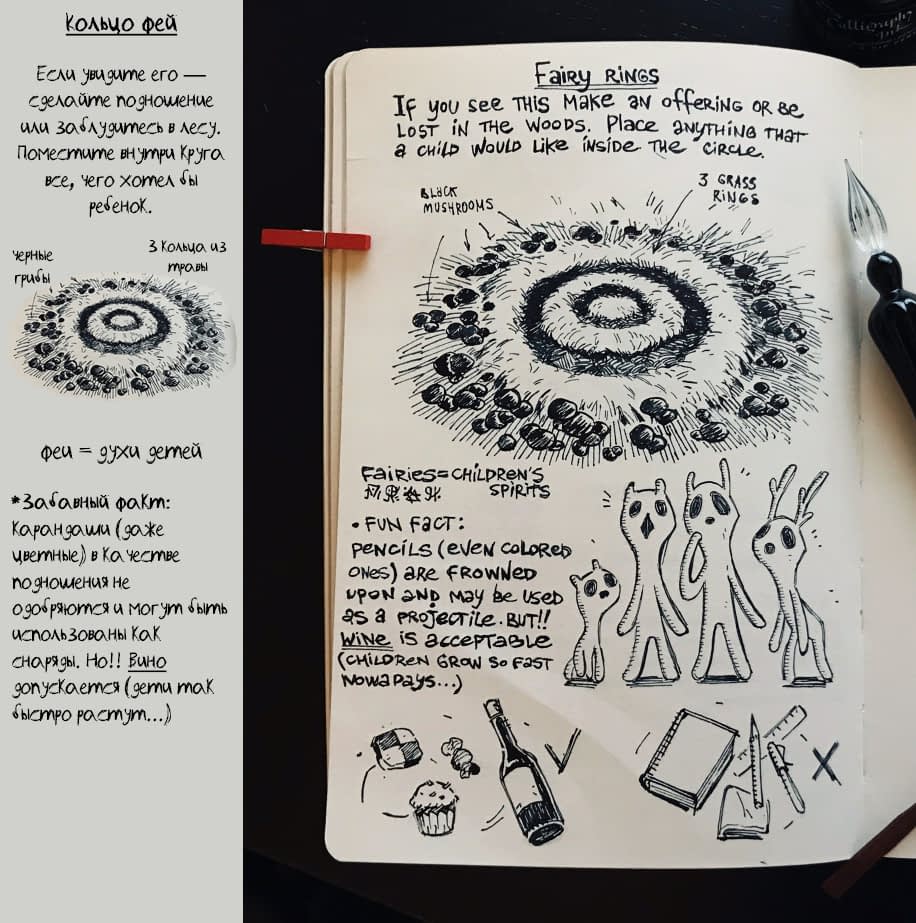 Кольцо фей
Если увидите его —
сделайте подношение
или заблудитесь в лесу.
Поместите внутри круга
все, чего хотел бы
ребенок.
черные
грибы
3 кольца из
травы
феи = духи детей
*Забавный факт:
карандаши (даже
цветные) в качестве
подношения не
одобряются и могут быть
использованы как
снаряды. Но!! Вино
допускается (дети так
быстро растут...)
Fairy RINGS
IF you see THIS MAKE AN OFFERING OR BE
LOST IN THE WOODS. PLACE ANYTHING THAT
a CHILD WOULD LIKE INSIDE THE CIRCLE.
BLACK
MUSHROOMS
3 GRASS
RINGS
Fairies=CHILDREN'S
SPIRITS
• FUN FACT:
PENCILS (EVEN COLORED
ONES) ARE FROWNED
UPON AND MAY BE USED
AS A PROJECTILE. BUT!!
WINE IS ACCEPTABLE
(CHILDREN GROW SO FAST
NOWADAYS...)